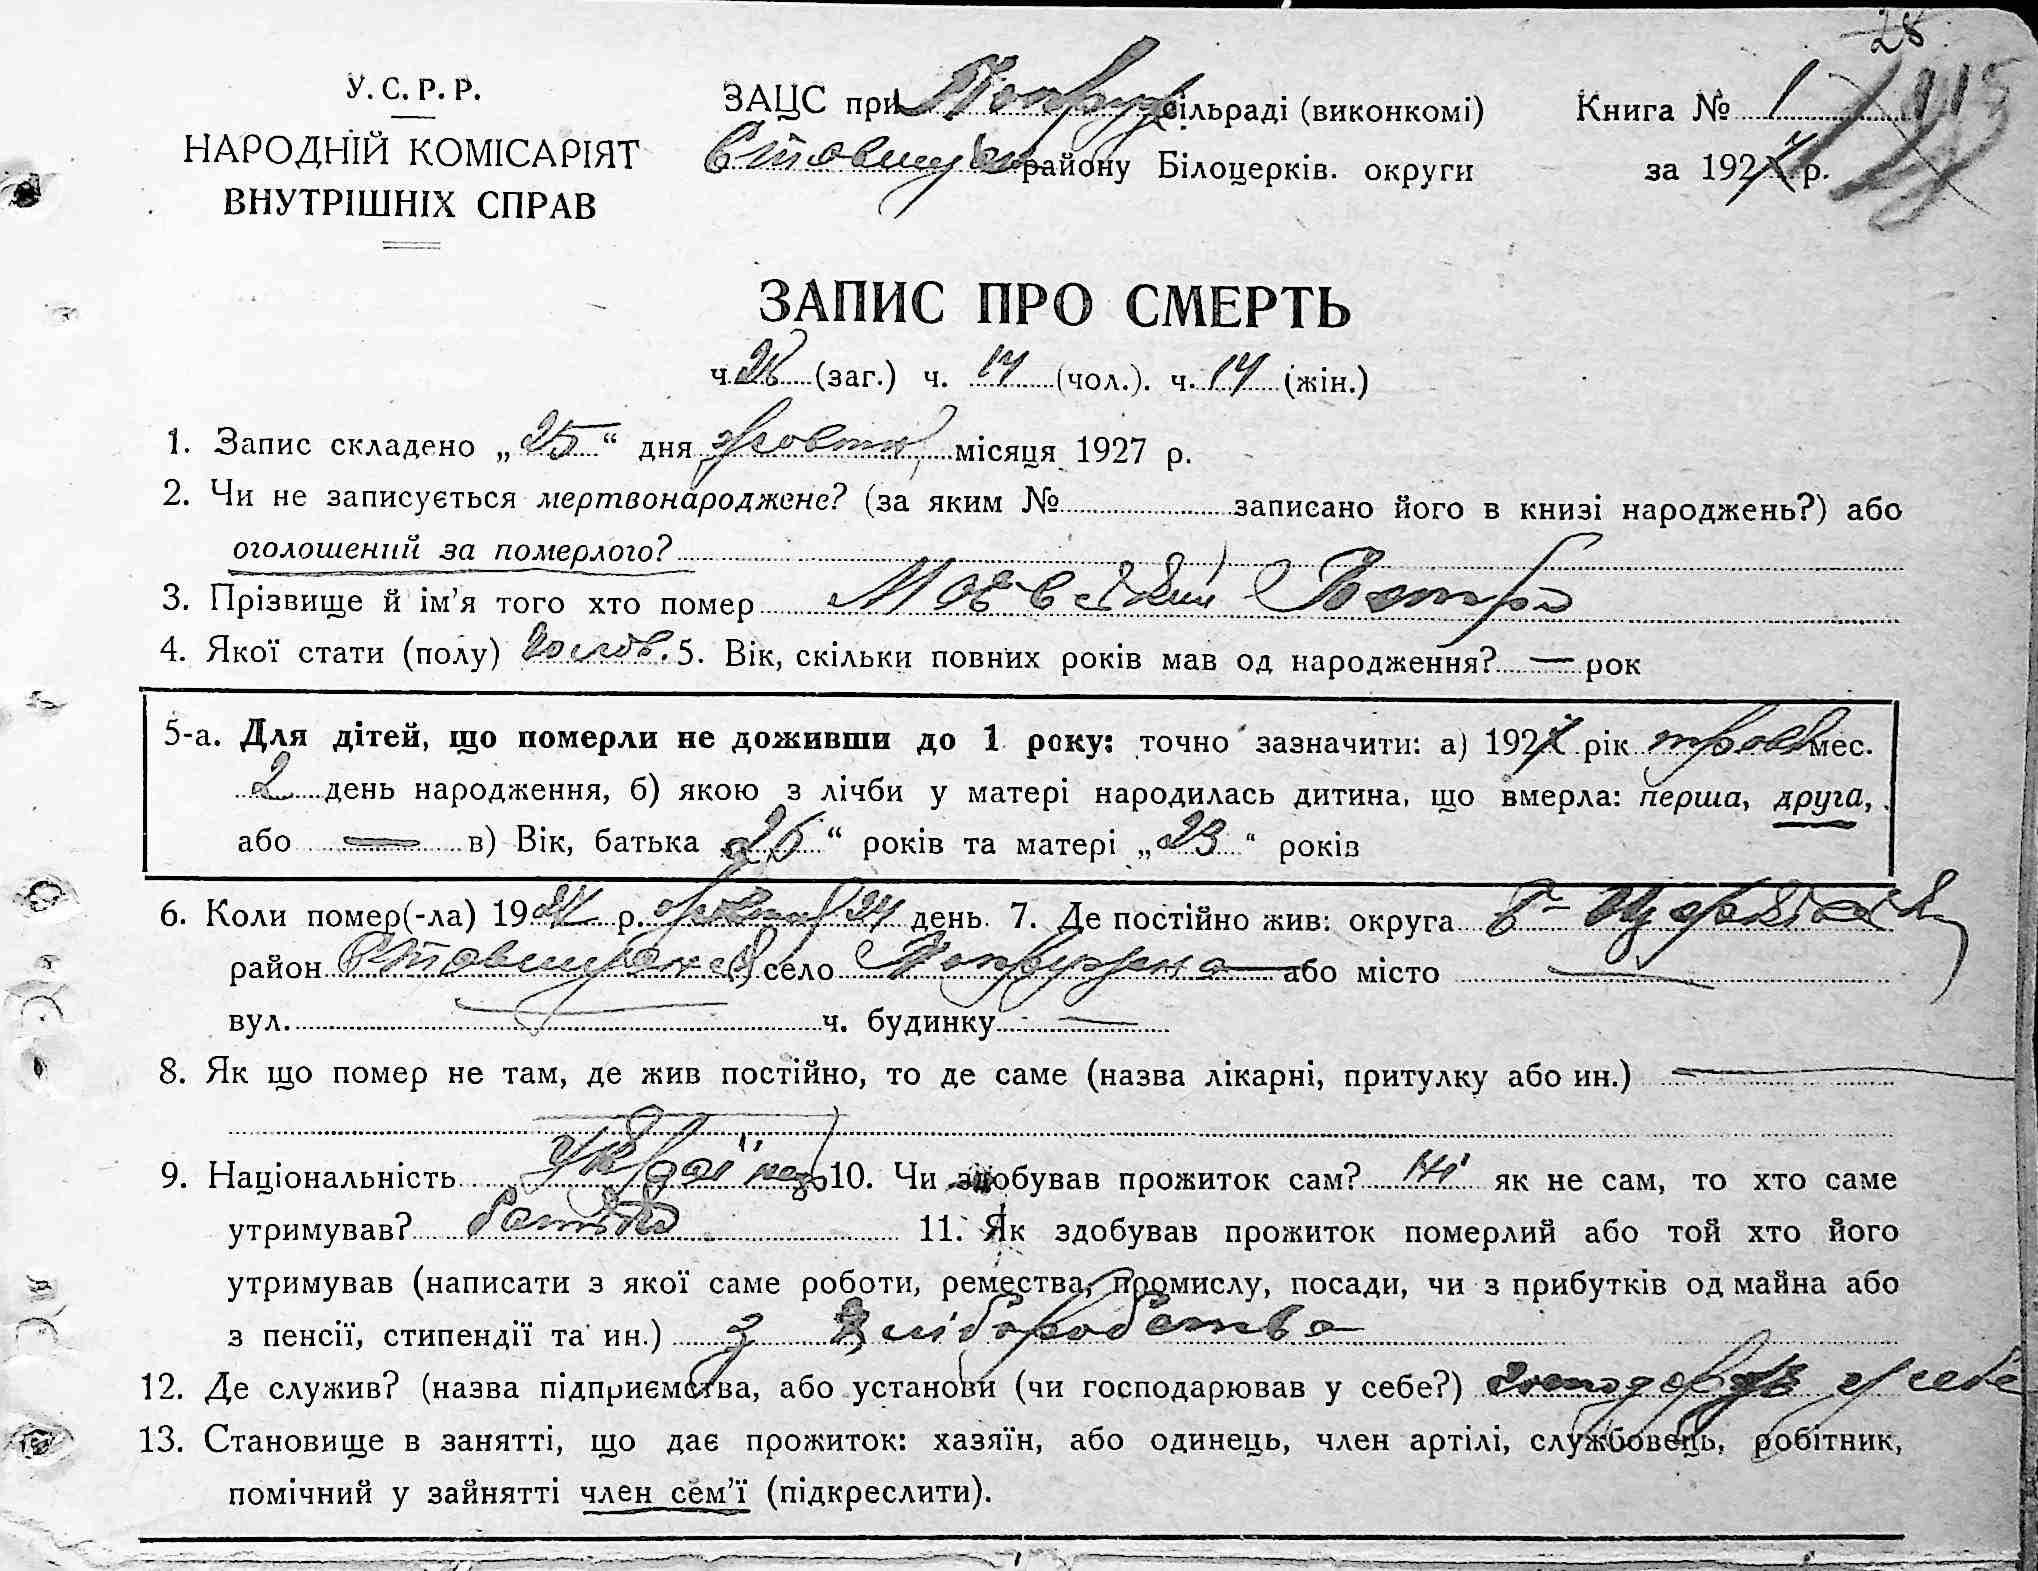 28
У. С. Р. Р.
НАРОДНІЙ КОМІСАРІЯТ
ВНУТРІШНІХ СПРАВ
ЗАЦС при сільраді (виконкомі)
району Білоцерків. округи
Книга № 1
за 1927 р.
ЗАПИС ПРО СМЕРТЬ
ч. 28 (заг.) ч. 14 (чол.). ч. 14 (жін.)
1. Запис складено „ 25 “ дня жовтня місяця 1927 р.
2. Чи не записується мертвонароджене? (за яким № записано його в книзі народжень?) або
оголошений за померлого?
3. Прізвище й ім’я того хто помер Маєвский Петро
4. Якої стати (полу) чолов. 5. Вік, скільки повних років мав од народження? — рок
5-а. Для дітей, що померли не доживши до 1 року: точно зазначити: а) 1927 рік мес.
2 день народження, б) якою з лічби у матері народилась дитина, що вмерла: перша, друга,
або — в) Вік, батька „ 26 “ років та матері „ 23 “ років
6. Коли помер(-ла) 1927 р. жовтня 24 день. 7. Де постійно жив: округа Б-Церківськ
район Ставищанськ село або місто —
вул. — ч. будинку —
8. Як що помер не там, де жив постійно, то де саме (назва лікарні, притулку або ин.) —
9. Національність Українец 10. Чи здобував прожиток сам? ні як не сам, то хто саме
утримував? батько 11. Як здобував прожиток померлий або той хто його
утримував (написати з якої саме роботи, ремества, промислу, посади, чи з прибутків од майна або
з пенсії, стипендії та ин.) з хліборобства
12. Де служив? (назва підприємства, або установи (чи господарював у себе?) у себе
13. Становище в занятті, що дає прожиток: хазяїн, або одинець, член артілі, службовець, робітник,
помічний у зайнятті член сем’ї (підкреслити).